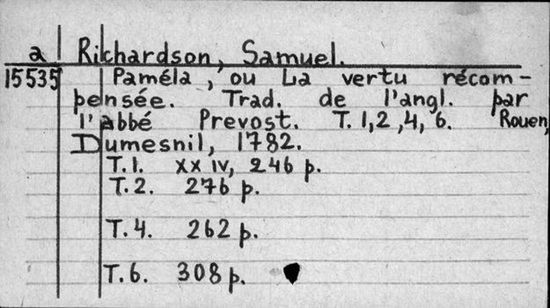 a Richardson, Samuel.
15535 Paméla, ou La vertu récom-
pensée. Trad. de l'angl. par
l'abbé Prevost. T. 1, 2, 4, 6. Rouen,
Dumesnil, 1782.
T. 1. XXIV, 246 p.
T. 2. 276 p.
T. 4. 262 p.
T. 6. 308 p.